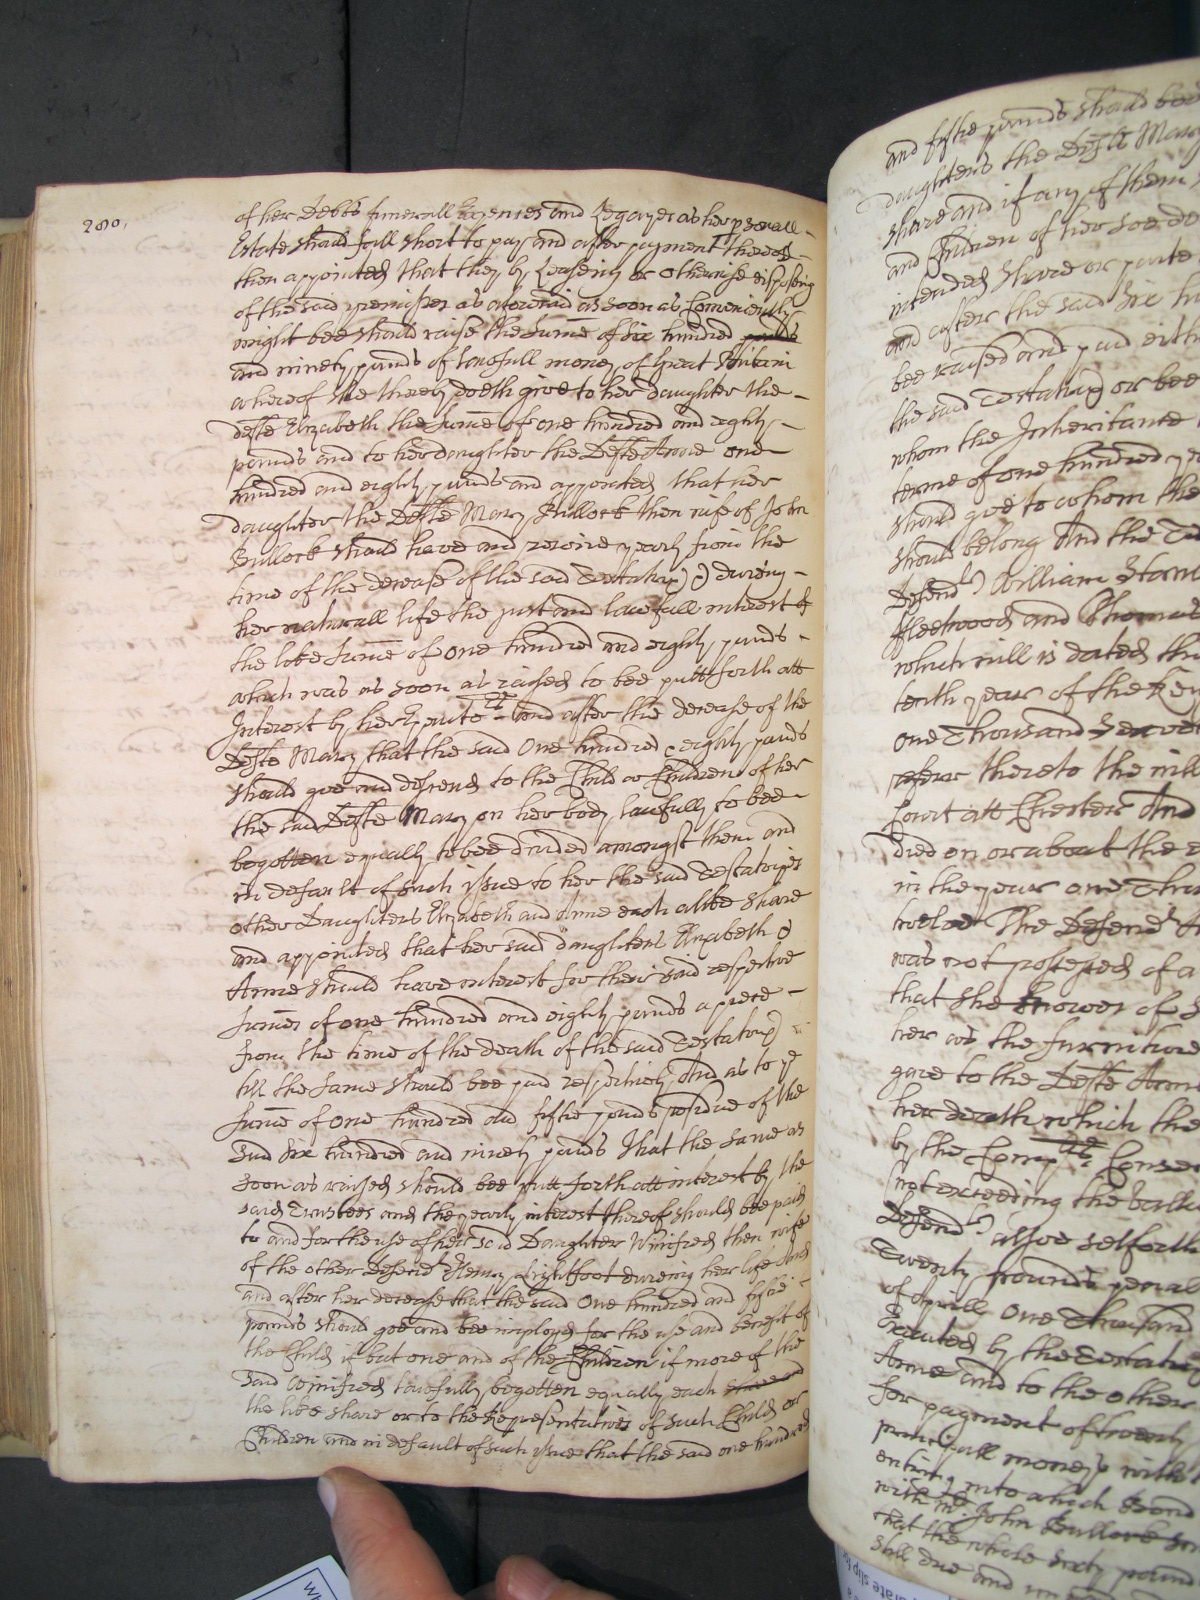 200,
of her Debts funerall Expences and Legacyes as her psonall
Estate should fall short to pay and after payment thereof
then appointed that they by Leaseing or otherwise disposing
of the said premisses as aforesaid as soon as Conveniently
might bee should raise the Sume of six hundred pounds
and ninety pounds of lawfull money of Great Britain
whereof she thereby doeth give to her daughter the
Defte Elizabeth the Sume of one hundred and eighty
pounds and to her daughter the Defte Anne one
hundred and eighty pounds and appointed that her
daughter the Defte Mary Bullock then wife of John
Bullock should have and receive yearly from the
time of the decease of the said Testatrix dureing
her naturall life the just and lawfull interest of
the like Sume of one hundred and eighty pounds
which was as soon as raised to bee putt forth att
Interest by her and after the decease of the
Defte Mary that the said One hundred & eighty pounds
should goe and descend to the Child or Children of her
the said Defte Mary on her body lawfully to bee
begotten equally to bee divided amongst them and
in default of such issue to her the said Testatrixes
other Daughters Elizabeth and Anne each alike share
and appointed that her said daughters Elizabeth &
Anne should have interest for their said respective
Sumes of one hundred and eighty pounds apiece
from the time of the death of the said Testatrix
till the same should bee paid respectively And as to ye
Sume of one hundred and fiftie pounds residue of the
said Six hundred and ninety pounds That the same as
soon as raised should bee putt forth att interest by the
said Trustees and the yearly interest thereof should bee paid
to and for the use of her said Daughter Winifred then wife
of the other Defend Henry Lightfoot dureing her life And
and after her decease that the said One hundred and fiftie
pounds should goe and bee imployed for the use and benefit of
the Child if but one and of the Children if more of the
said Winifred lawfully begotten equally each share and
the like share or to the Representatives of such Child or
Children and in default of such issue that the said one hundred
and fiftie pounds should bee
daughters the Defte Mary
share and if any of them
and Children of her soe
intended share or parte
and after the said Six
bee raised and paid
the said Testatrix or bee
whom the Inheritance
terme of one hundred
should goe to whom the
should belong And the
Defend William
Fleetwood and Thomas
which will is dated the
tenth year of the
One Thousand Seven
thereto the will
Court att Chester And
died on or about the
in the year one
twelve The Defend
was not possessed of a
that she knowes of
her as the furniture
gave to the Defte Anne
her death which the
by the Comp
not exceeding the
Defend alsoe setforth
Twenty pounds penal
of Aprill One Thousand
Executed by the Testatrix
Anne and to the other
for payment of twenty
principall money with
entring into which Bond
with Mr. John Bullock
that the whole Sixty pound
still due and